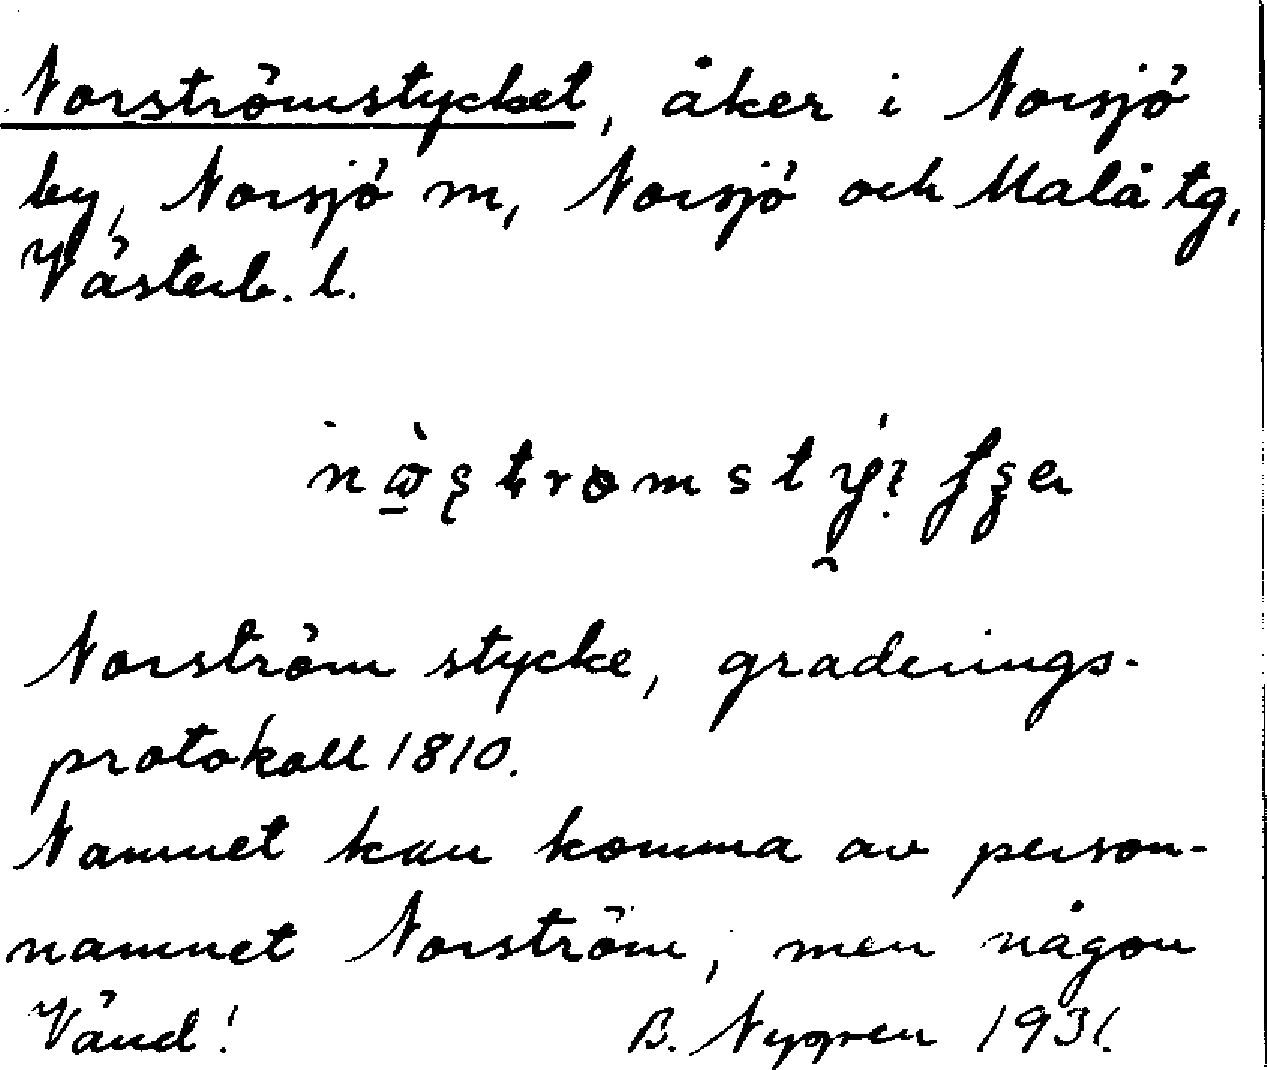 Norströmstycket, åker i Norsjö
by, Norsjö m, Norsjö och Malå tg,
Västerb. l.
Norström stycke, graderings-
protokoll 1810.
Namnet kan komma av person-
namnet Norström, men någon
Vänd! B. Nygren 1931.